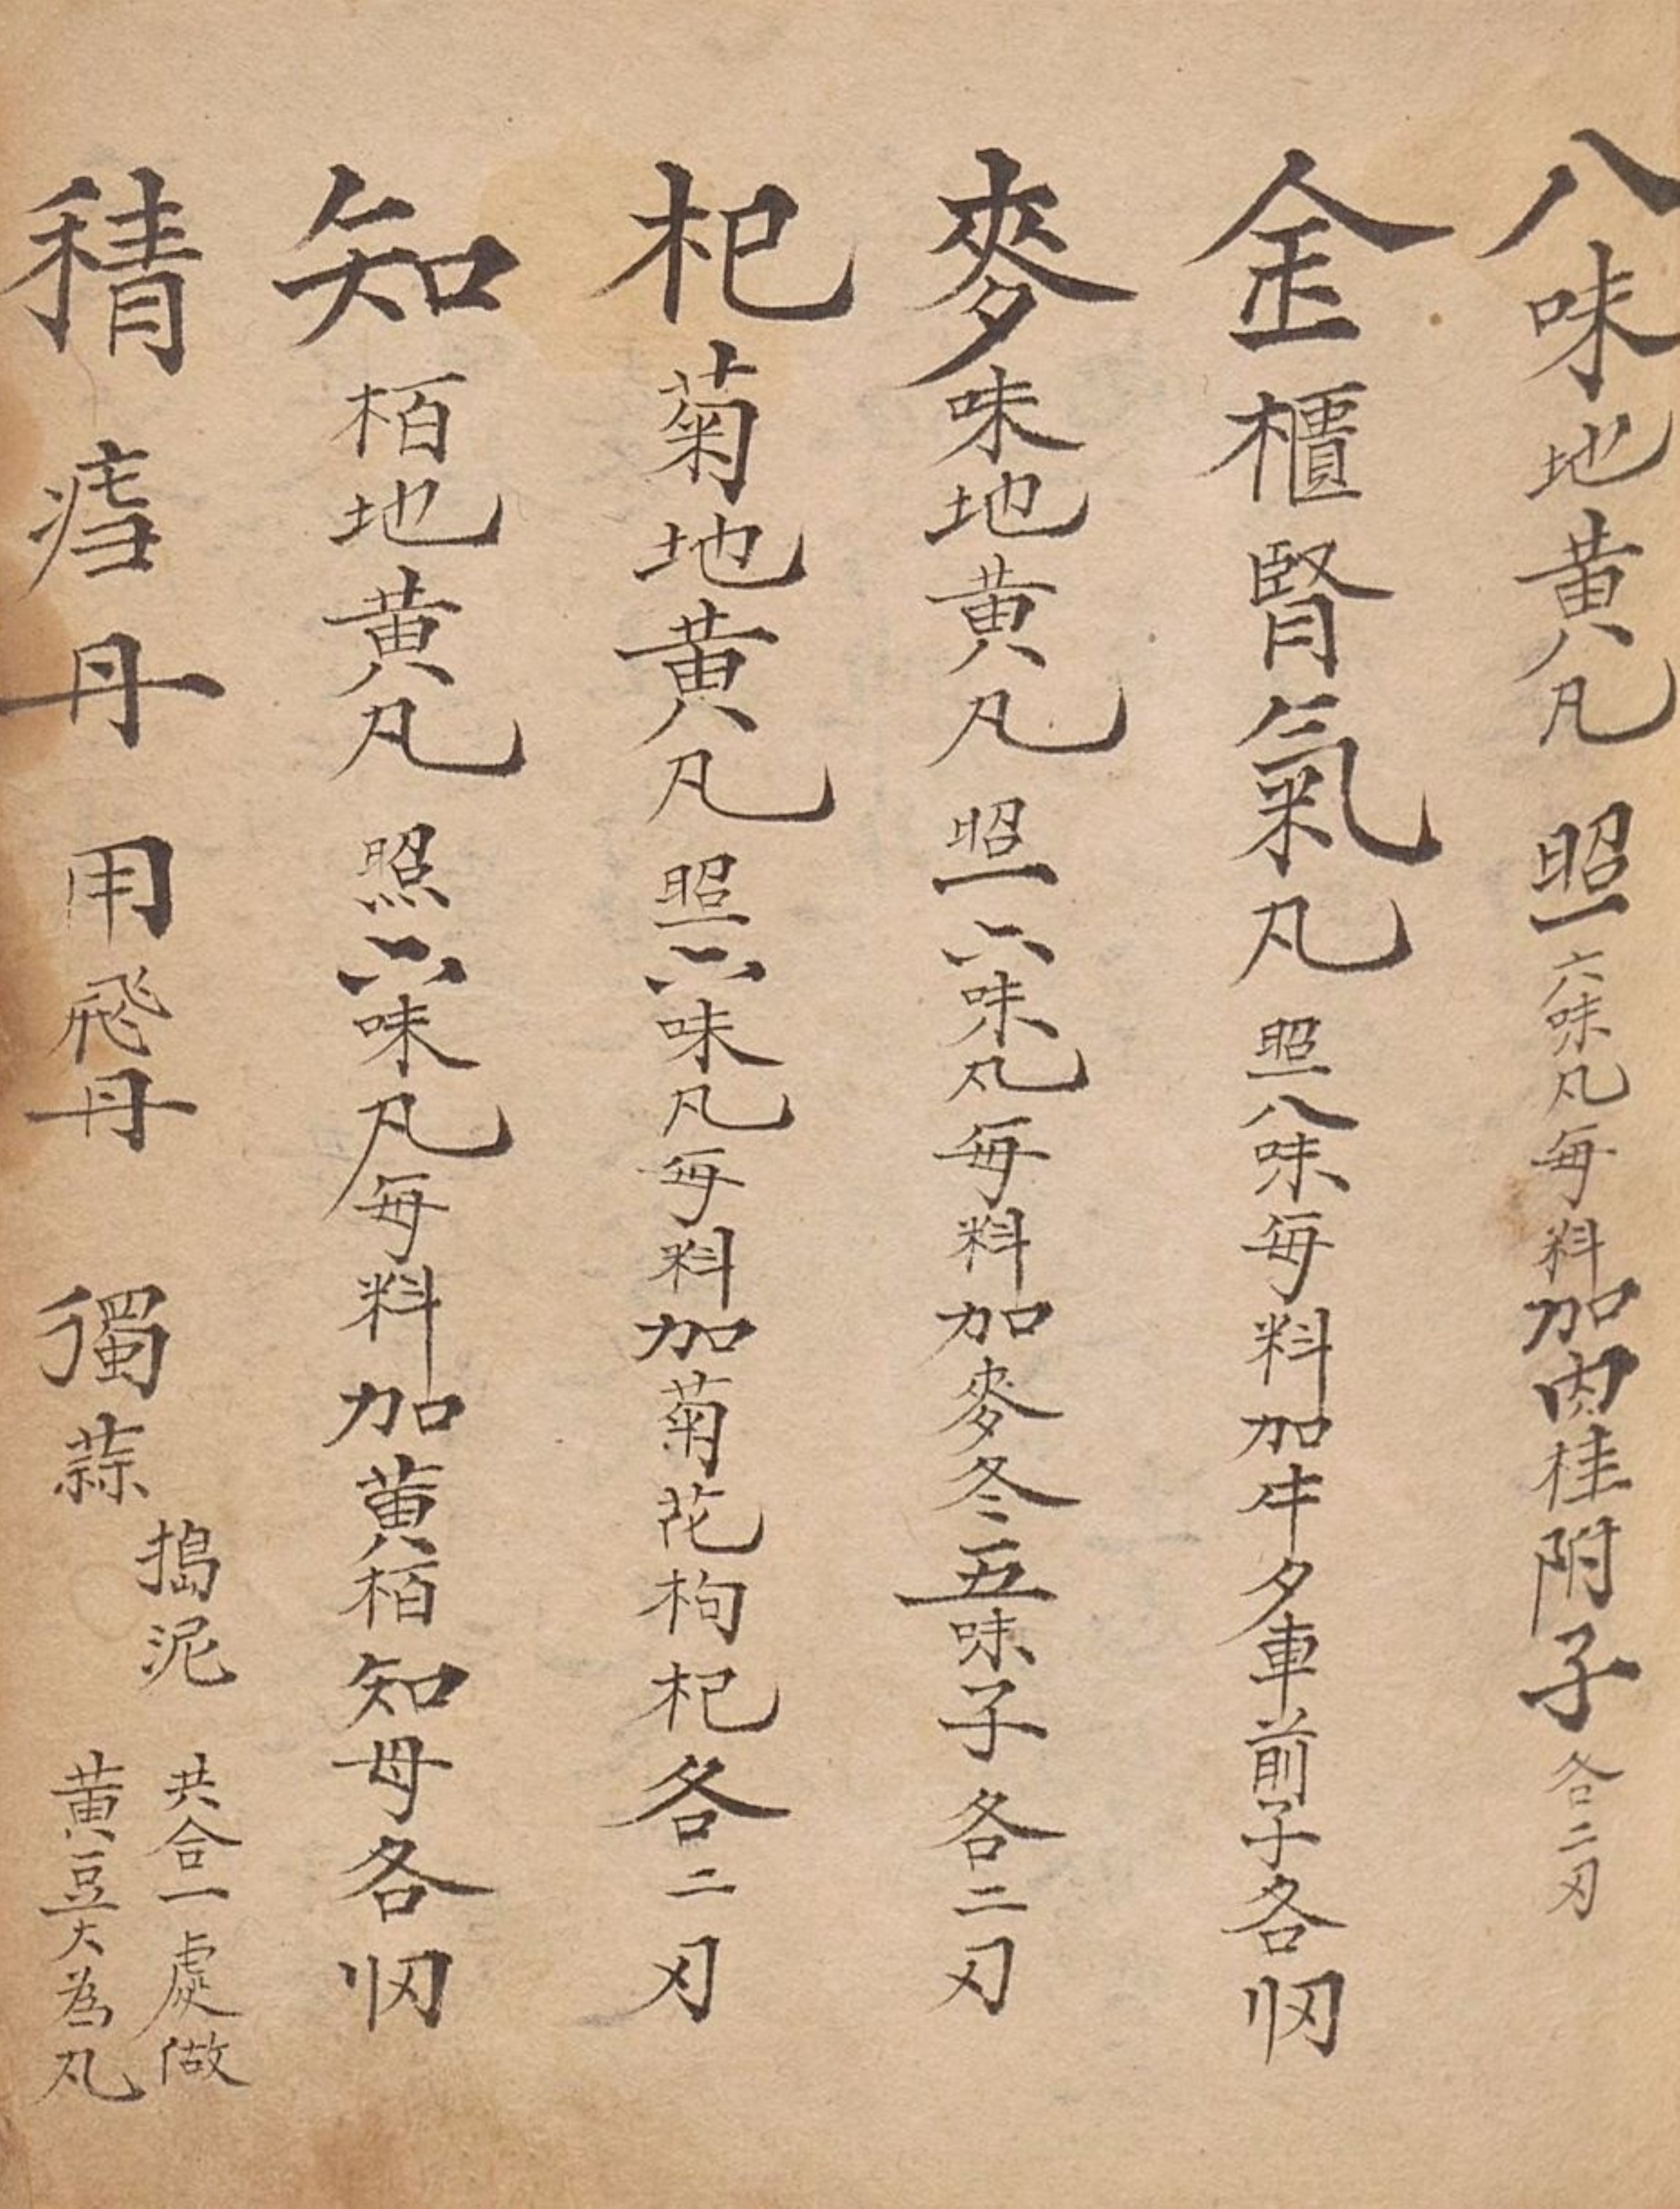 八味地黄凡 照六味凡每料加肉桂附子各二刃
金櫃腎氣凡 照八味每料加牛夕車前子各刅
麥味地黄凡 照六味凡每料加麥冬五味子各二刃
杞菊地黄凡 照六味凡每料加菊花枸杞各二刃
知栢地黄凡 照六味凡每料加黄栢知母各刅
精 丹 用飛丹 獨蒜 搗泥
共合一處做
黄豆大為凡